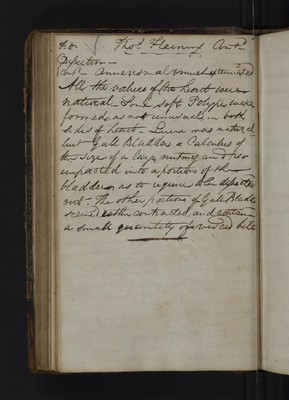 Thos. Fleming Contd.
Dissection –
All the valves of the heart were
natural – Some soft Polypi were
formed, as not unusual, in both
sides of heart – Liver was natural
but Gall Bladder a Calculus of
the size of a large nutmeg and so
impacted into a portion of the
bladder, as to require to be dissected
out – The other portion of Gall Bladder
seemed rather contracted, and contained
a small quantity of viscid bile